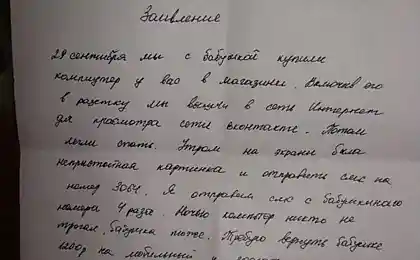 Заявление
29 сентября мы с бабушкой купили
компьютер у вас в магазине. Включив его
в розетку мы вышли в сеть Интернет
для просмотра сети вконтакте. Потом
легли спать. Утром на экране была
непристойная картинка и отправить смс на
номер 3061. Я отправил смс с бабушкиного
номера 4 раза. Ночью компьтер никто не
трогал, бабушка тоже. Требую вернуть бабушке
на мобильный и